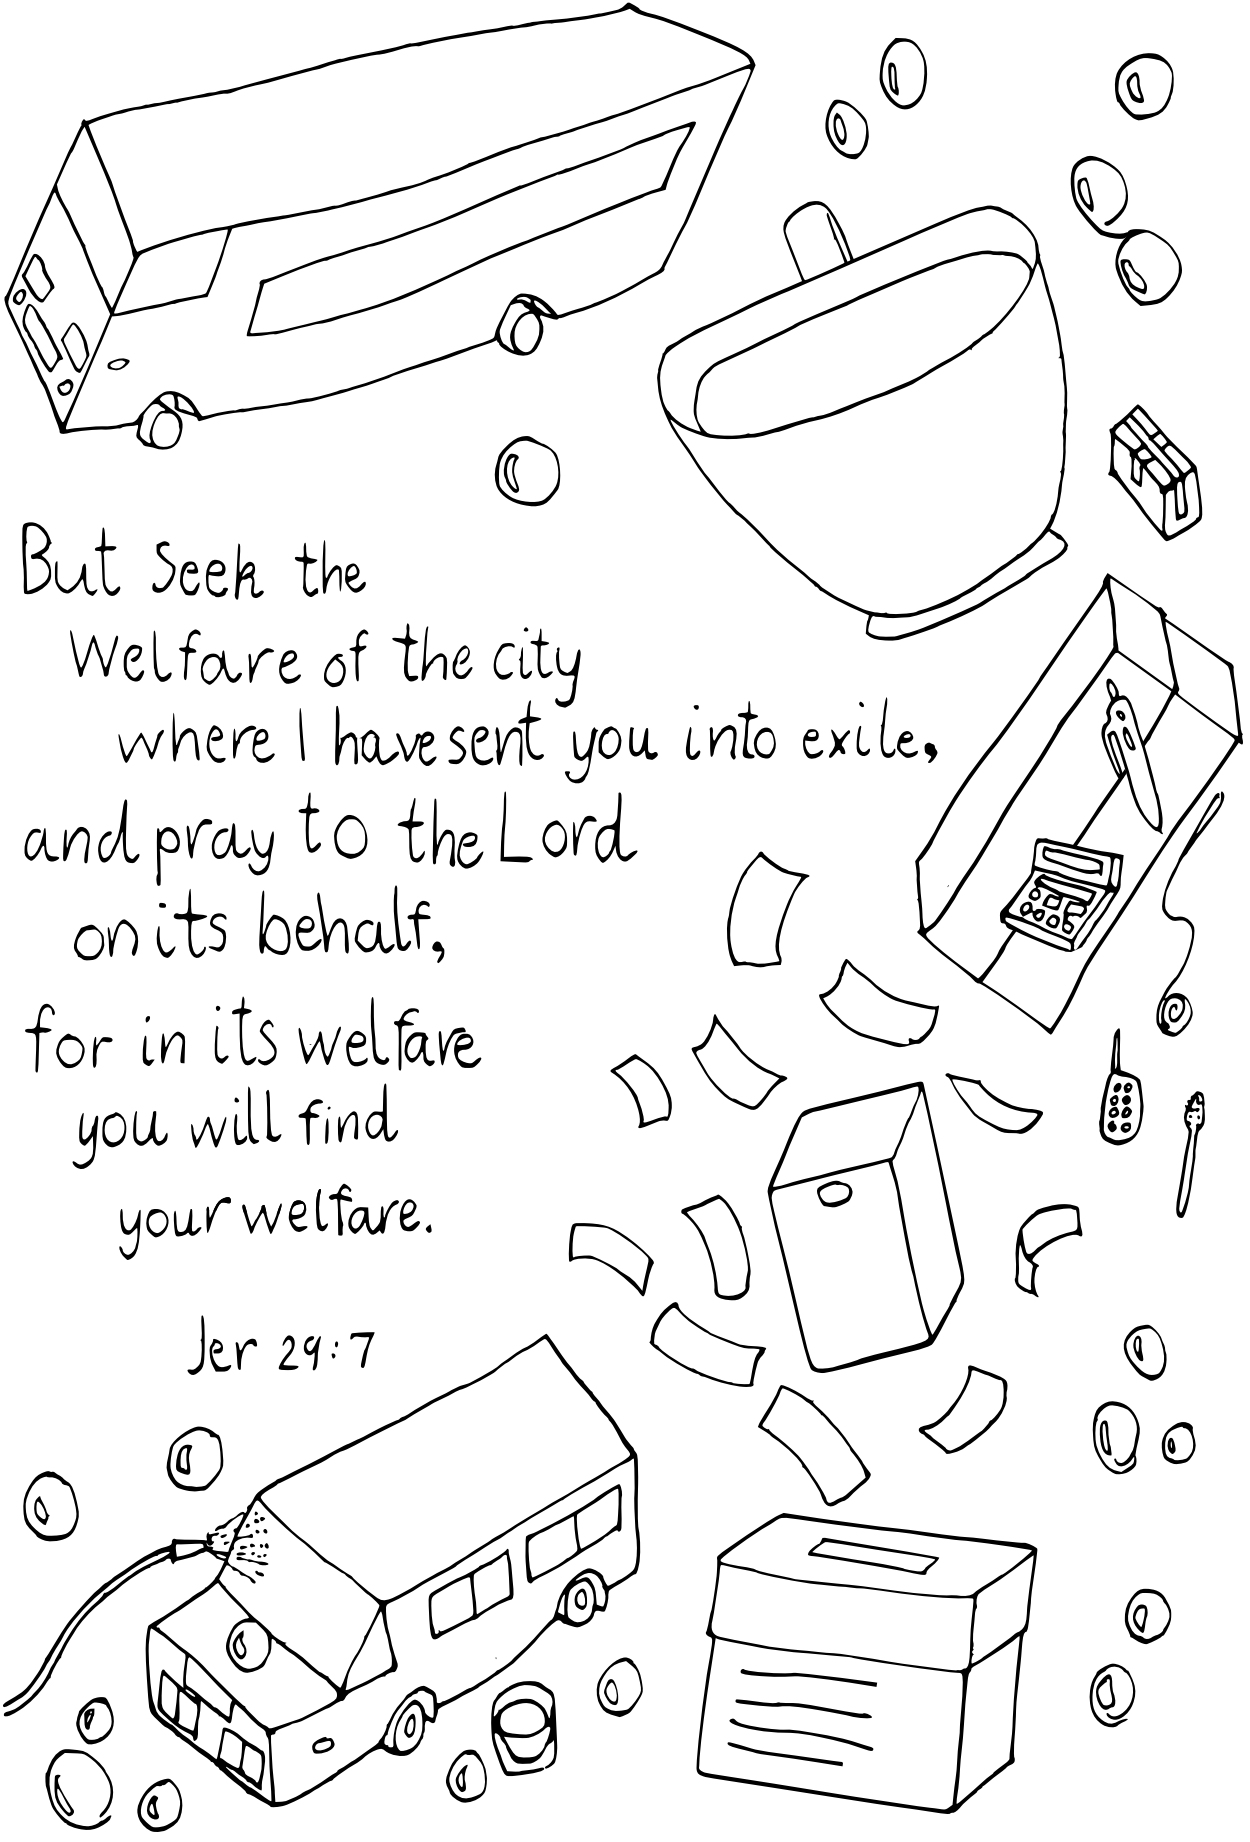 But Seek the
Welfare of the city
where I have sent you into exile,
and pray to the Lord
on its behalf,
for in its welfare
you will find
your welfare.
Jer 29:7